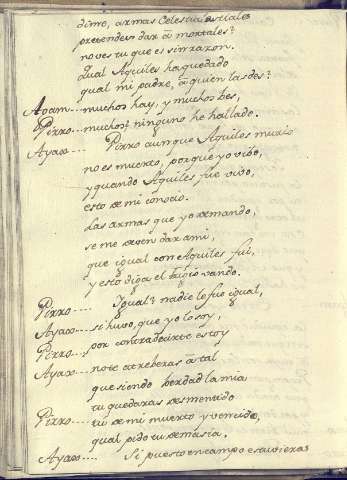 dime, armas Celestiales
pretendes dar a mortales?
no ves tu que es sinrazon.
Qual Aquiles ha quedado
qual mi padre, a quien las des?
Agam.... muchos hay, y muchos ves,
Pirro.... muchos? ninguno he hallado.
Ayax.... Pirro aunque Aquiles murio
no es muerto, porque yo vivo,
y quando Aquiles fue vivo,
esto
Las armas que yo demando,
se me deven dar a mi,
que igual con Aquiles fui,
y esto diga el vando.
Pirro.... Igual? nadie lo fue igual,
Ayax.... si huvo, que yo lo soy,
Pirro.... por contradecirte estoy
Ayax.... no te atreberas a tal
que siendo berdad la mia
tu quedaras desmentido
Pirro.... tu de mi muerto y vencido,
qual pide tu demasia.
Ayax.... Si puesto en campo estuviera